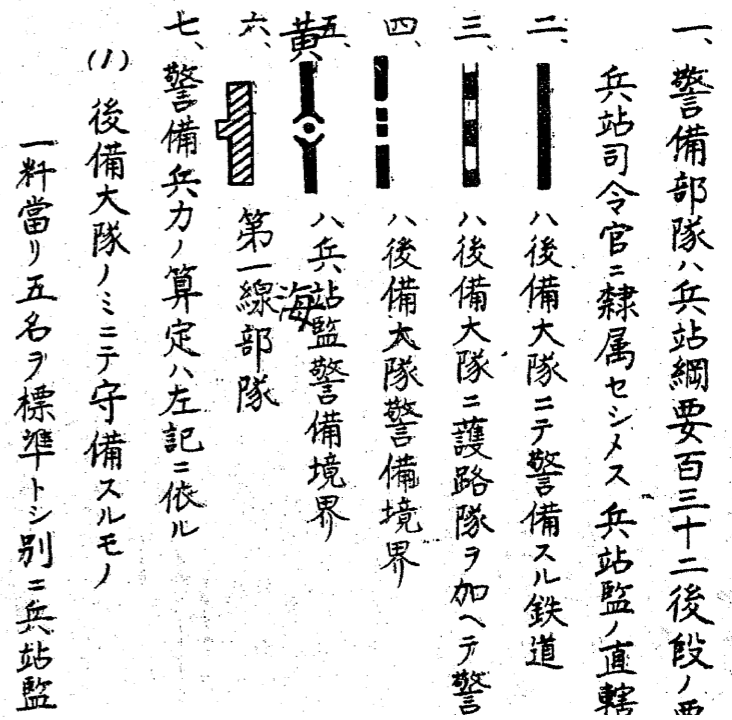 一、警備部隊ハ兵站綱要百三十二後段ノ要
兵站司令官ニ隷属セシメス兵站監ノ直轄
二、ハ後備大隊ニテ警備スル鉄道
三、ハ後備大隊ニ護路隊ヲ加ヘテ警
四、ハ後備大隊警備境界
五、ハ兵站監警備境界
黄海
六、第一線部隊
七、警備兵力ノ算定ハ左記ニ依ル
(1)後備大隊ノミニテ守備スルモノ
一粁當リ五名ヲ標準トシ別ニ兵站監